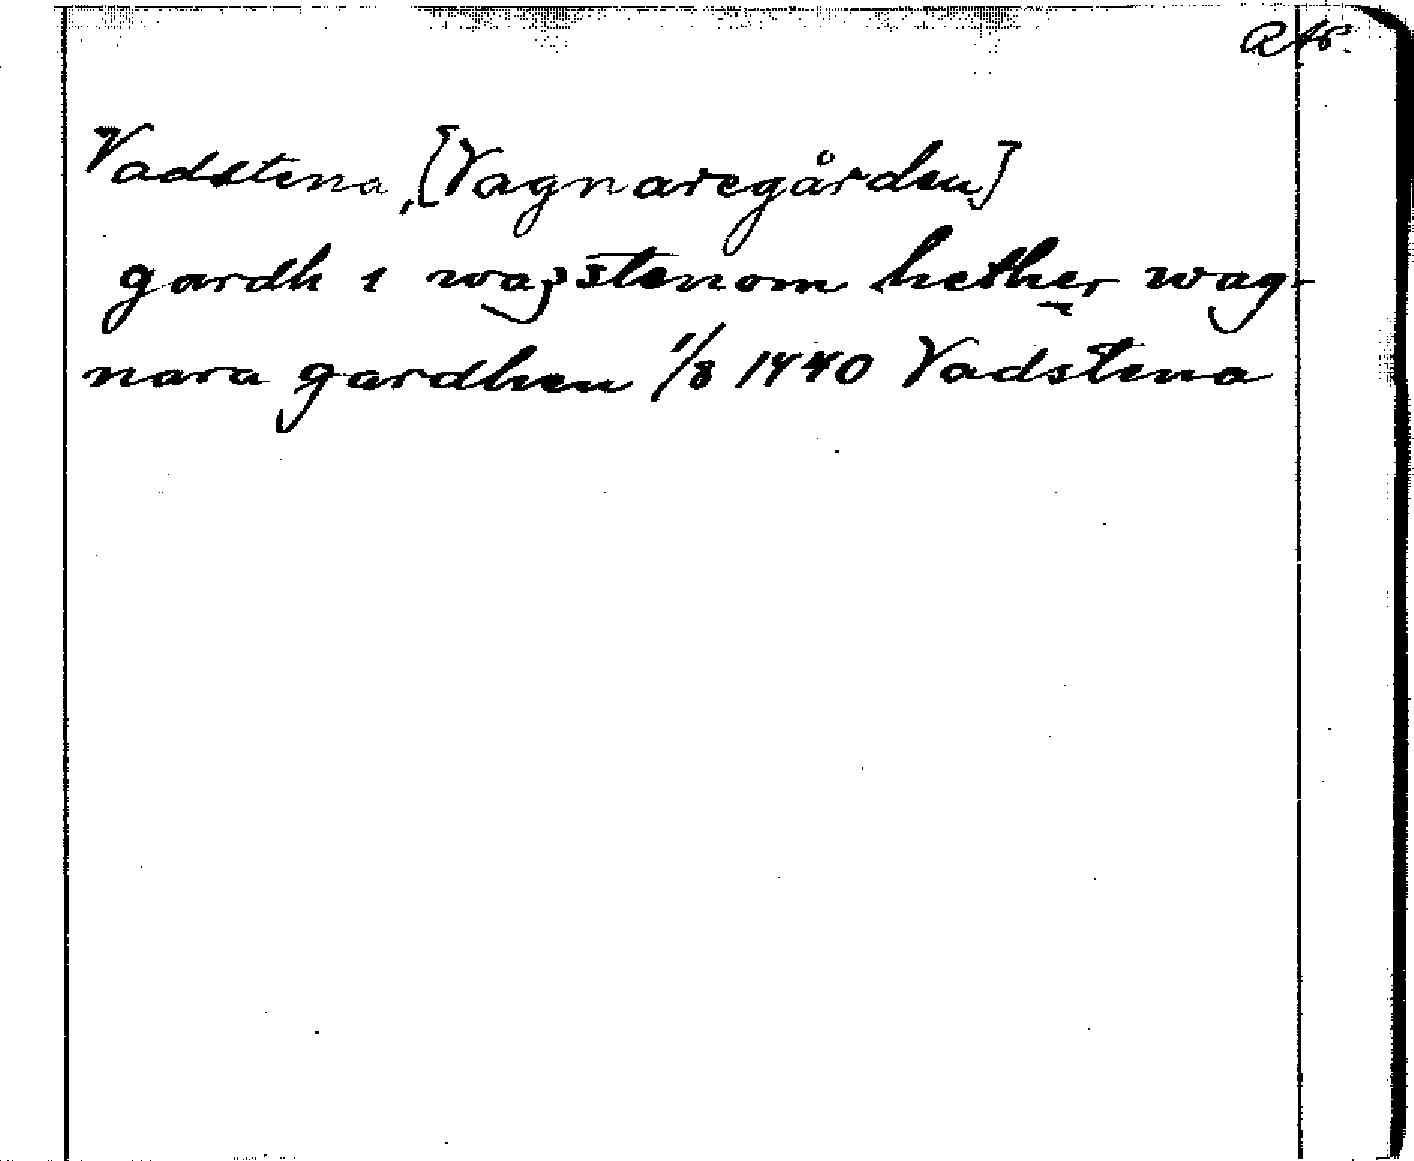 Vadstena, [Vagnaregården]
gardh i wazstenom hether wag-
nara gardhen 1/8 1440 Vadstena